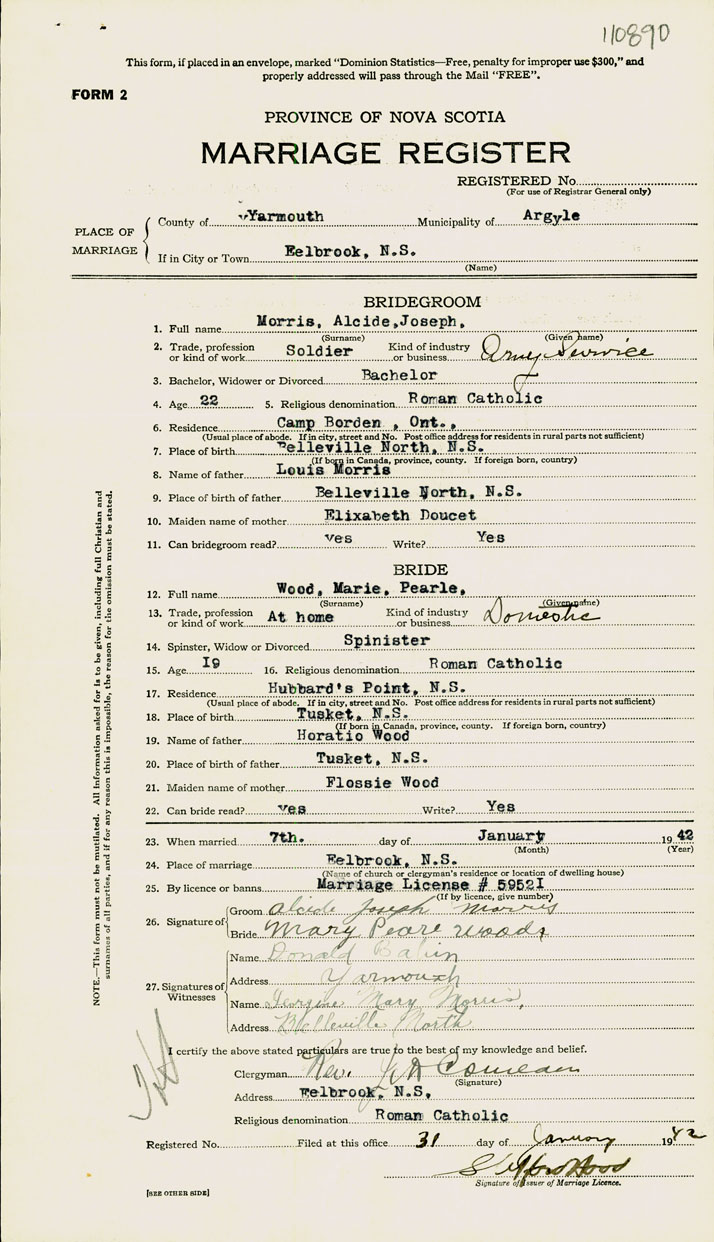 110890
This form, if placed in an envelope, marked "Dominion Statistics—Free, penalty for improper use $300," and
properly addressed will pass through the Mail "FREE".
FORM 2
PROVINCE OF NOVA SCOTIA
MARRIAGE REGISTER
REGISTERED No.
(For use of Registrar General only)
PLACE OF MARRIAGE
County of Yarmouth Municipality of Argyle
If in City or Town Eelbrook, N.S.
(Name)
BRIDEGROOM
1. Full name Morris, Alcide,Joseph,
(Surname) (Given name)
2. Trade, profession or kind of work Soldier Kind of industry or business Army Service
3. Bachelor, Widower or Divorced Bachelor
4. Age 22 5. Religious denomination Roman Catholic
6. Residence Camp Borden , Ont.,
(Usual place of abode. If in city, street and No. Post office address for residents in rural parts not sufficient)
7. Place of birth Belleville North, N.S.
(If born in Canada, province, county. If foreign born, country)
8. Name of father Louis Morris
9. Place of birth of father Belleville North, N.S.
10. Maiden name of mother Elixabeth Doucet
11. Can bridegroom read? yes Write? Yes
BRIDE
12. Full name Wood, Marie, Pearle,
(Surname) (Given name)
13. Trade, profession or kind of work At home Kind of industry or business Domestic
14. Spinster, Widow or Divorced Spinister
15. Age I9 16. Religious denomination Roman Catholic
17. Residence Hubbard's Point, N.S.
(Usual place of abode. If in city, street and No. Post office address for residents in rural parts not sufficient)
18. Place of birth Tusket, N.S.
(If born in Canada, province, county. If foreign born, country)
19. Name of father Horatio Wood
20. Place of birth of father Tusket, N.S.
21. Maiden name of mother Flossie Wood
22. Can bride read? yes Write? Yes
23. When married 7th. day of January 19 42
(Month) (Year)
24. Place of marriage Eelbrook, N.S.
(Name of church or clergyman's residence or location of dwelling house)
25. By licence or banns Marriage License # 5952I
(If by licence, give number)
26. Signature of
Groom Alcide Joseph Morris
Bride Mary Pearl Woods
27. Signatures of Witnesses
Name Donald Babin
Address Yarmouth
Name Mary Morris,
Address Belleville North
I certify the above stated particulars are true to the best of my knowledge and belief.
Clergyman Rev. Comeau
(Signature)
Address Eelbrook, N.S,
Religious denomination Roman Catholic
Registered No. Filed at this office 31 day of January 1942
Signature of Issuer of Marriage Licence.
[SEE OTHER SIDE]
NOTE.—This form must not be mutilated. All information asked for is to be given, including full Christian and
surnames of all parties, and if for any reason this is impossible, the reason for the omission must be stated.